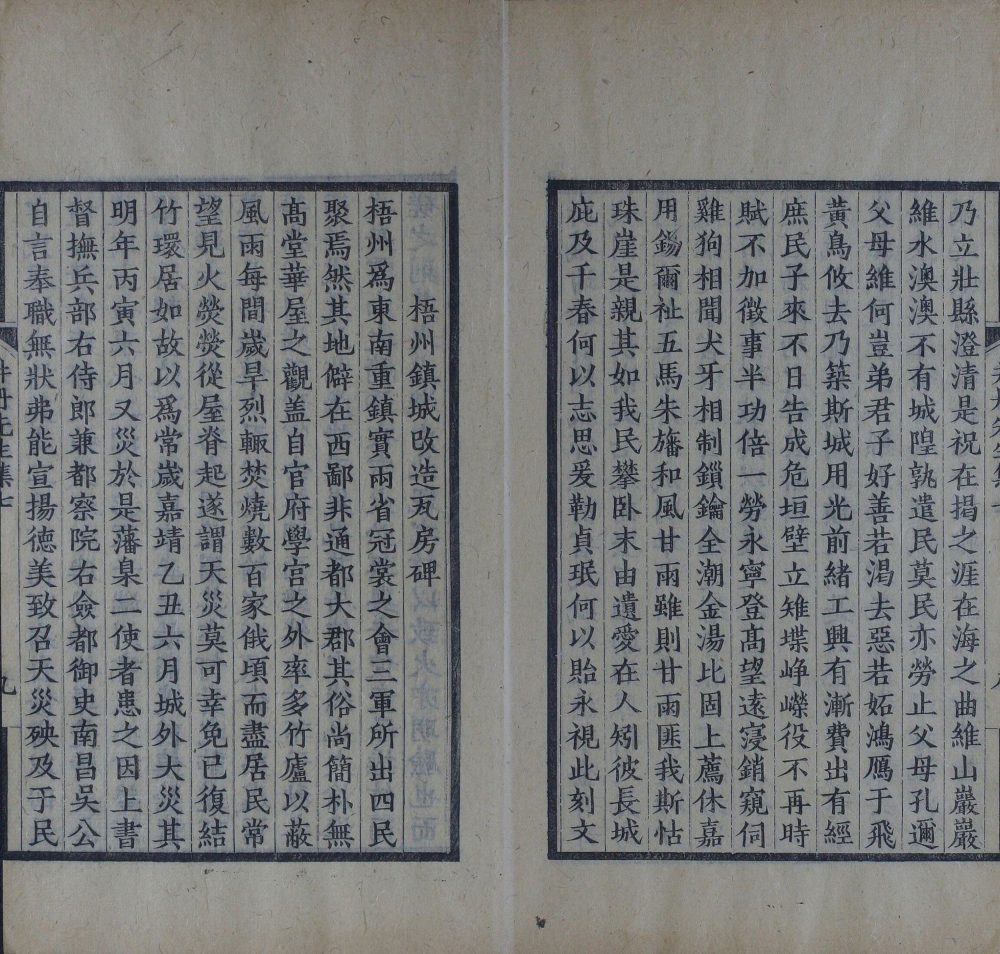 乃立壯縣澄清是祝在揭之涯在海之曲維山巖巖
維水澳澳不有城隍孰遣民莫民亦勞止父母孔邇
父母維何豈弟君子好善若渴去惡若妬鴻鴈于飛
黃鳥攸去乃築斯城用光前緒工興有漸費出有經
庶民子來不日告成危垣壁立雉堞崢嶸役不再時
賦不加徵事半功倍一勞永寧登髙望遠寖銷窺伺
雞狗相聞犬牙相制鎖鑰全潮金湯比固上薦休嘉
用錫爾祉五馬朱旛和風甘雨雖則甘雨匪我斯怙
珠崖是親其如我民攀卧末由遺愛在人矧彼長城
庇及千春何以志思爰勒貞珉何以貽永視此刻文
梧州鎮城改造瓦房碑
梧州爲東南重鎮實兩省冠裳之會三軍所出四民
聚焉然其地僻在西鄙非通都大郡其俗尚簡朴無
髙堂華屋之觀盖自官府學宮之外率多竹廬以蔽
風雨每間歲旱烈輙焚燒數百家俄頃而盡居民常
望見火熒熒從屋脊起遂謂天災莫可幸免已復結
竹環居如故以爲常歲嘉靖乙丑六月城外大災其
明年丙寅六月又災於是藩臬二使者患之因上書
督撫兵部右侍郎兼都察院右僉都御史南昌吳公
自言奉職無狀弗能宣揚德美致召天災殃及于民
井丹先生集七
九